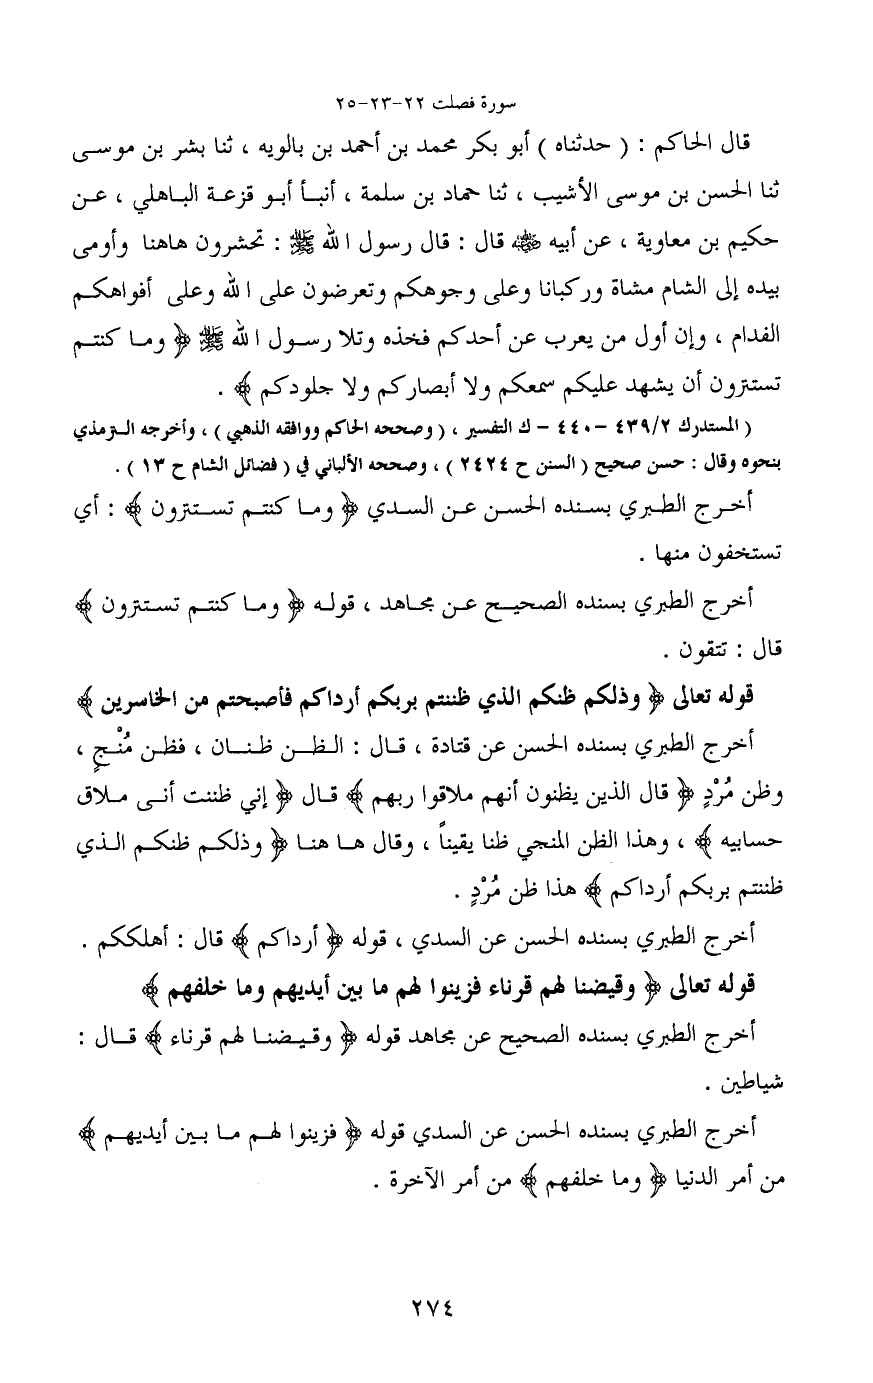 سورة فصلت ٢٢-٢٣-٢٥
قال الحاكم : ( حدثناه ) أبو بكر محمد بن أحمد بن بالويه ، ثنا بشر بن موسى
ثنا الحسن بن موسى الأشيب ، ثنا حماد بن سلمة ، أنبأ أبو قزعة الباهلي ، عن
حكيم بن معاوية ، عن أبيه ﵁ قال : قال رسول الله ﷺ : تحشرون هاهنا وأومى
بيده إلى الشام مشاة وركبانا وعلى وجوهكم وتعرضون على الله وعلى أفواهكم
الفدام ، وإن أول من يعرب عن أحدكم فخذه وتلا رسول الله ﷺ ﴿ وما كنتم
تستترون أن يشهد عليكم سمعكم ولا أبصاركم ولا جلودكم ﴾ .
( المستدرك ٤٣٩/٢ -٤٤٠ - ك التفسير ، ( وصححه الحاكم ووافقه الذهبي ) ، وأخرجه الترمذي
بنحوه وقال : حسن صحيح ( السنن ح ٢٤٢٤ ) ، وصححه الألباني في ( فضائل الشام ح ١٣ ) .
أخرج الطبري بسنده الحسن عن السدي ﴿ وما كنتم تستترون ﴾ : أي
تستخفون منها .
أخرج الطبري بسنده الصحيح عن مجاهد ، قوله ﴿ وما كنتم تستترون ﴾
قال : تتقون .
قوله تعالى ﴿ وذلكم ظنكم الذي ظننتم بربكم أرداكم فأصبحتم من الخاسرين ﴾
أخرج الطبري بسنده الحسن عن قتادة ، قال : الظن ظنان ، فظن مُنْجٍ ،
وظن مُرْدٍ ﴿ قال الذين يظنون أنهم ملاقوا ربهم ﴾ قال ﴿ إني ظننت أنى ملاق
حسابيه ﴾ ، وهذا الظن المنجي ظنا يقيناً ، وقال ها هنا ﴿ وذلكم ظنكم الذي
ظننتم بربكم أرداكم ﴾ هذا ظن مُرْدٍ .
أخرج الطبري بسنده الحسن عن السدي ، قوله ﴿ أرداكم ﴾ قال : أهلككم .
قوله تعالى ﴿ وقيضنا لهم قرناء فزينوا لهم ما بين أيديهم وما خلفهم ﴾
أخرج الطبري بسنده الصحيح عن مجاهد قوله ﴿ وقيضنا لهم قرناء ﴾ قال :
شياطين .
أخرج الطبري بسنده الحسن عن السدي قوله ﴿ فزينوا لهم ما بين أيديهم ﴾
من أمر الدنيا ﴿ وما خلفهم ﴾ من أمر الآخرة .
٢٧٤